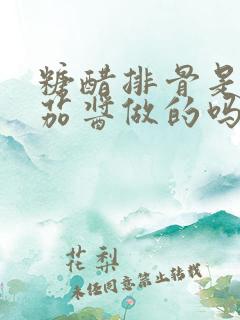 糖醋排骨是
茄酱做的吗
花梨
未经同意禁止转载